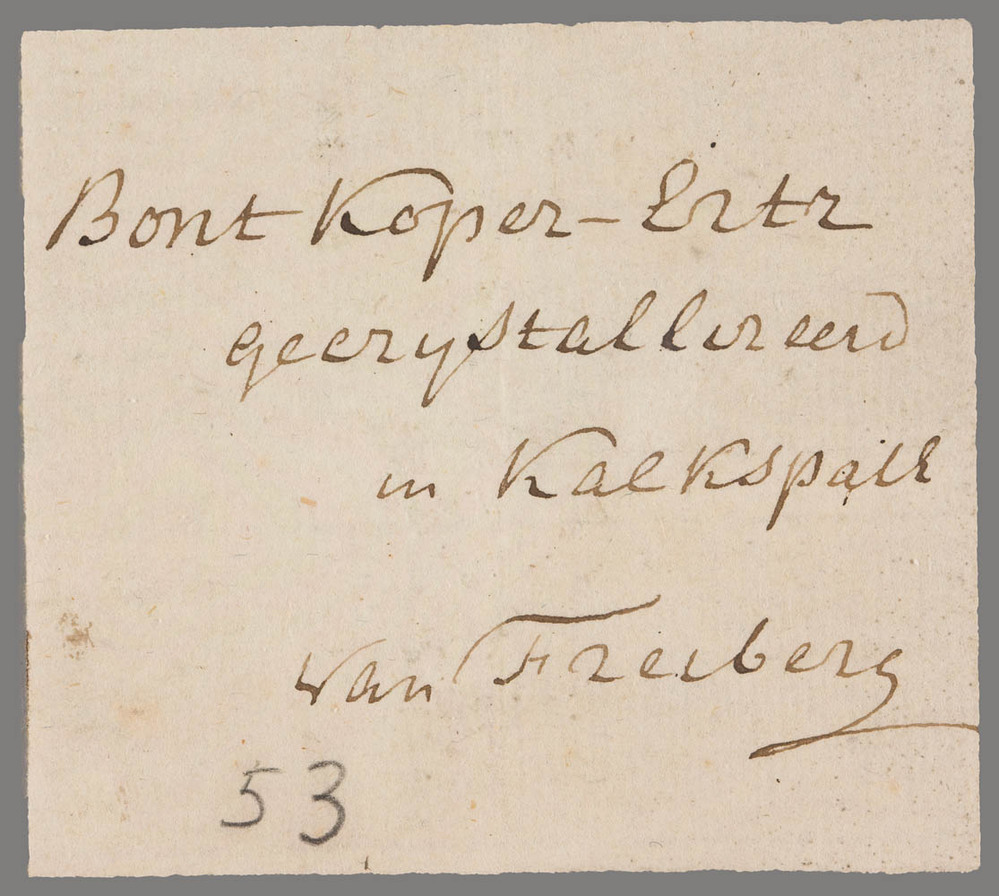 Bont Koper-Ertz
gecrystallizeerd
in Kalkspath
van Freiberg
53